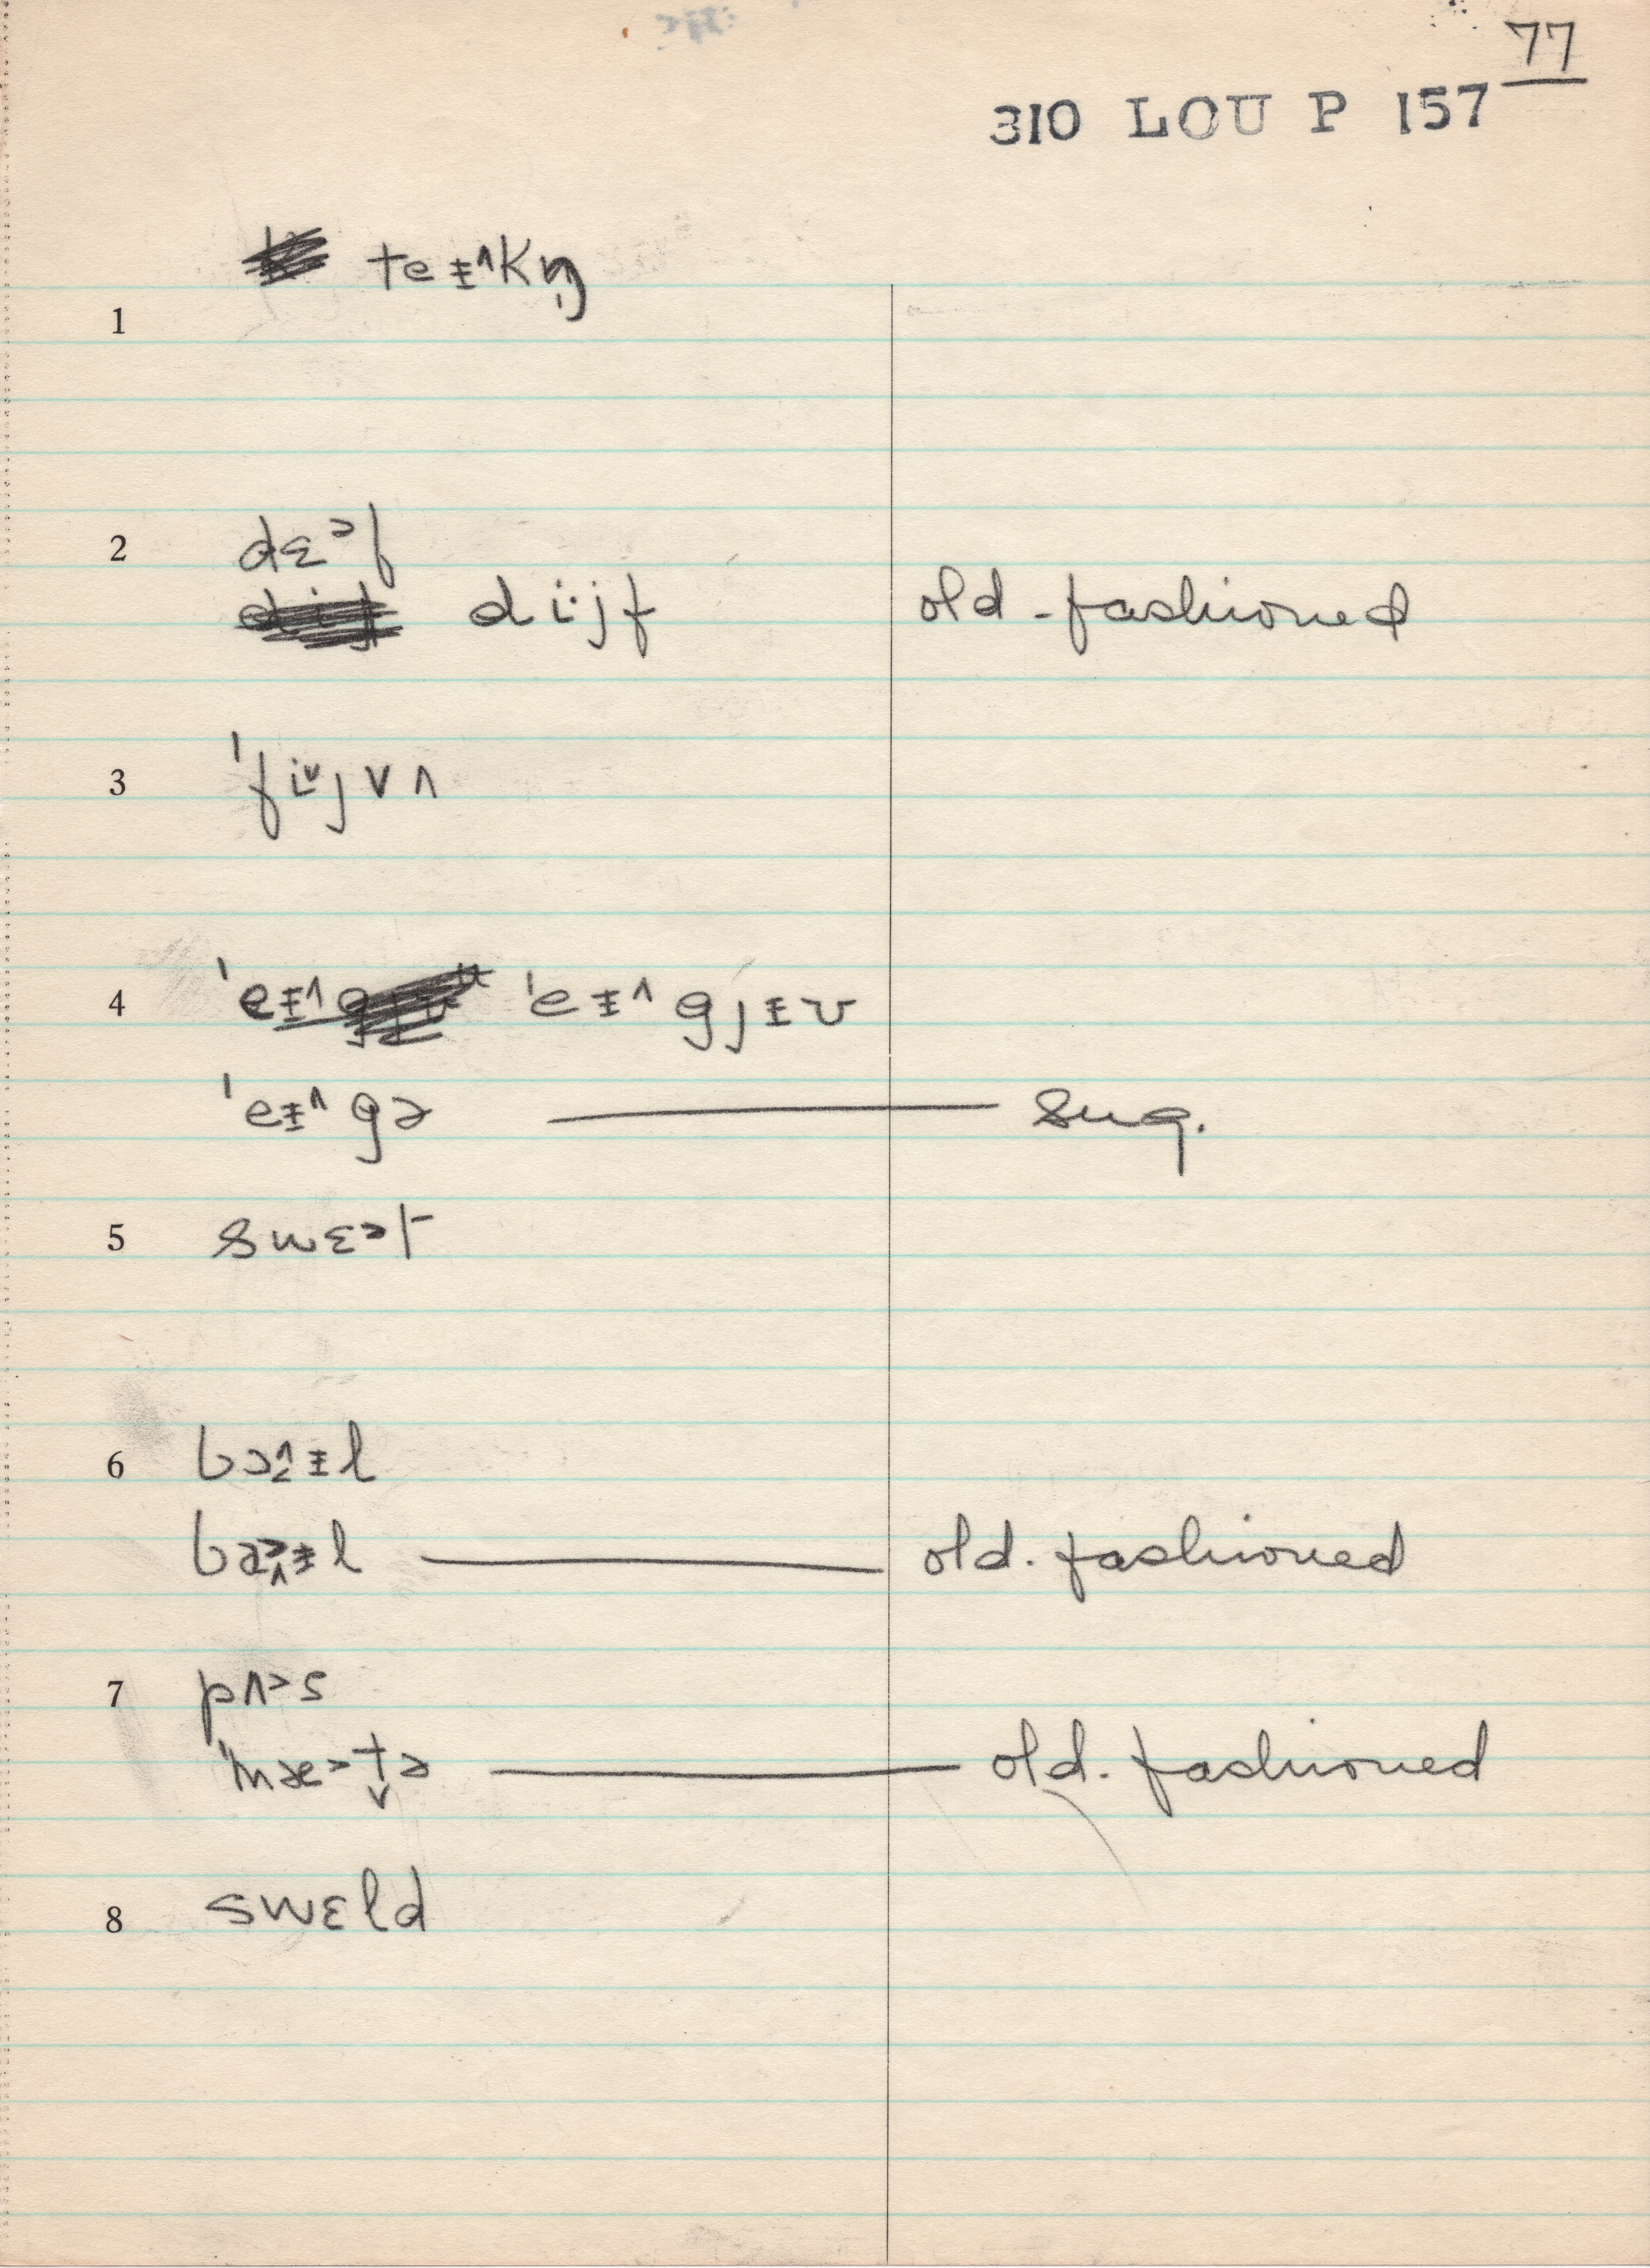 77
310 LOU P 157
1 teᵻ^kŋ̩
2 dɛᵊf
di·jf old-fashioned
3 ˈfi˅jvʌ
4 ˈeᵻ^gjᵻʊ
ˈeᵻ^gə — sug.
5 swɛᵊt
6 bɔᵻl
old-fashioned
7 pʌᵊs
ˈmæᵊt̬ə — old-fashioned
8 swɛld